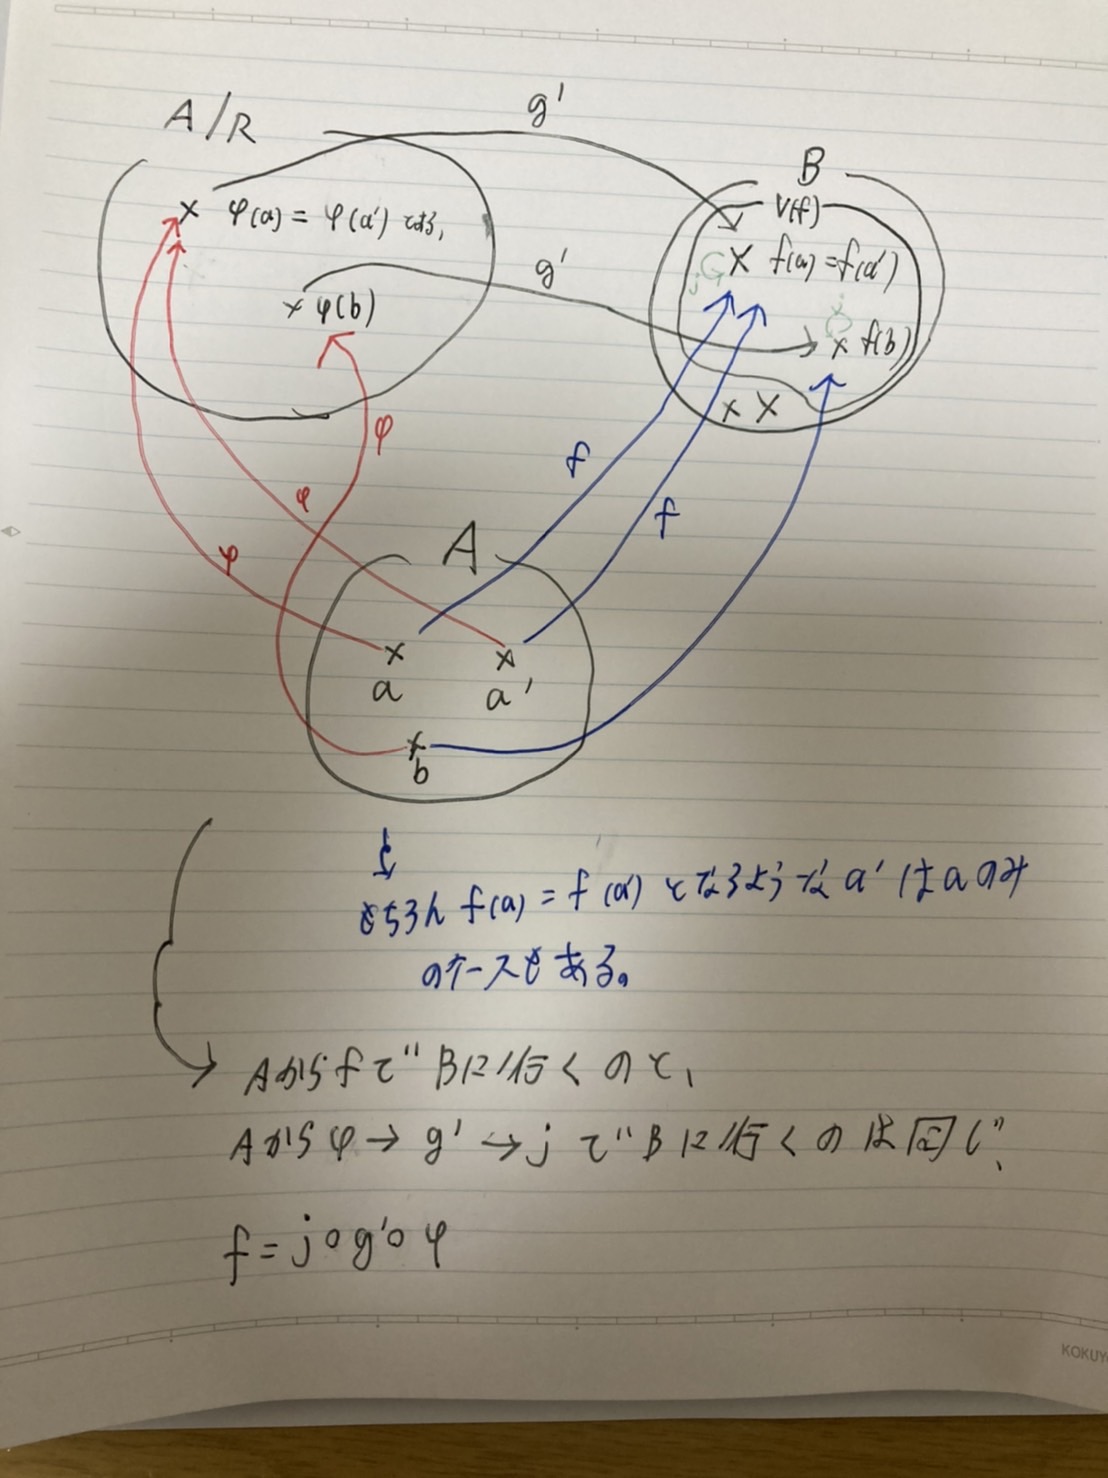 A/R
g'
B
V(f)
× φ(a) = φ(a') である,
× f(a) = f(a')
j
g'
j
× φ(b)
× f(b)
× ×
φ
f
φ
f
φ
A
× ×
a a'
×
b
もちろん f(a) = f(a') となるような a' は a のみ
のケースもある。
Aからfで Bに行くのと、
Aから φ → g' → j で Bに行くのは同じ、
f = j ∘ g' ∘ φ
KOKUY